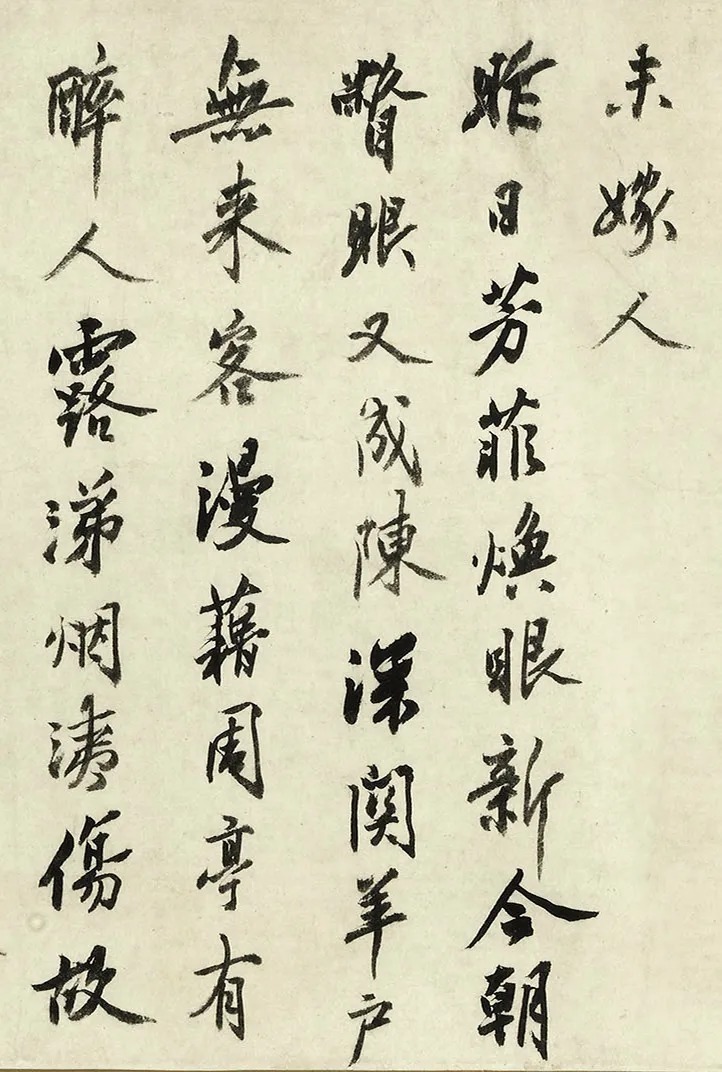 未嫁人
昨日芳菲煥眼新今朝
瞥眼又成陳深關羊户
無来客漫藉周亭有
醉人露涕烟洟傷故